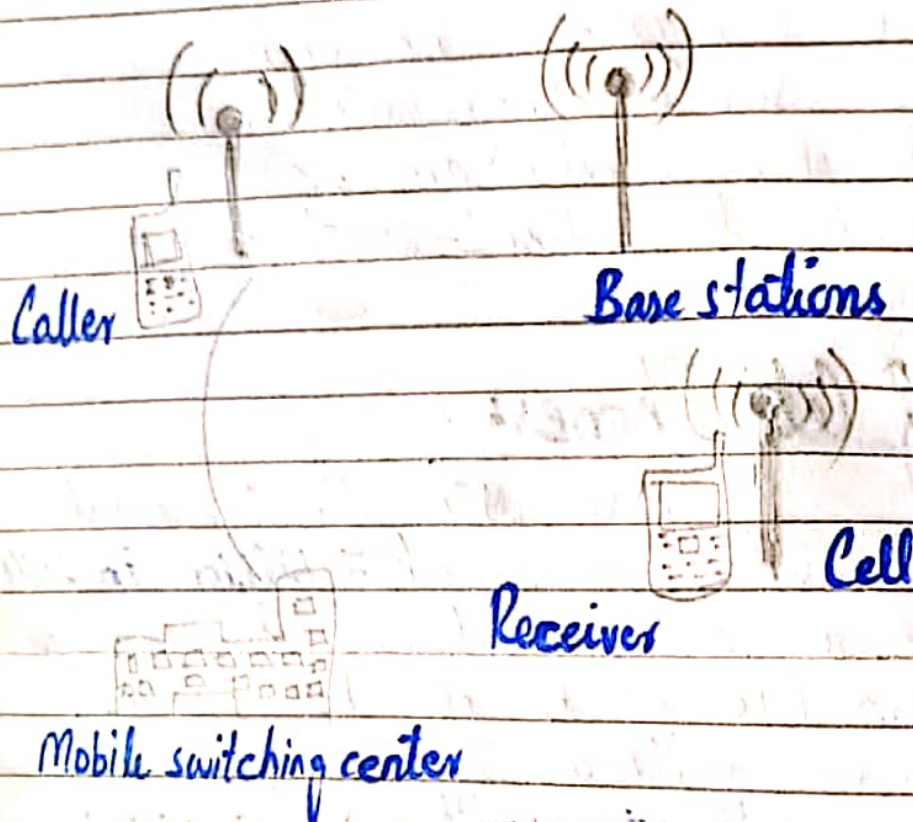 Caller
Base stations
Cell
Receiver
Mobile switching center